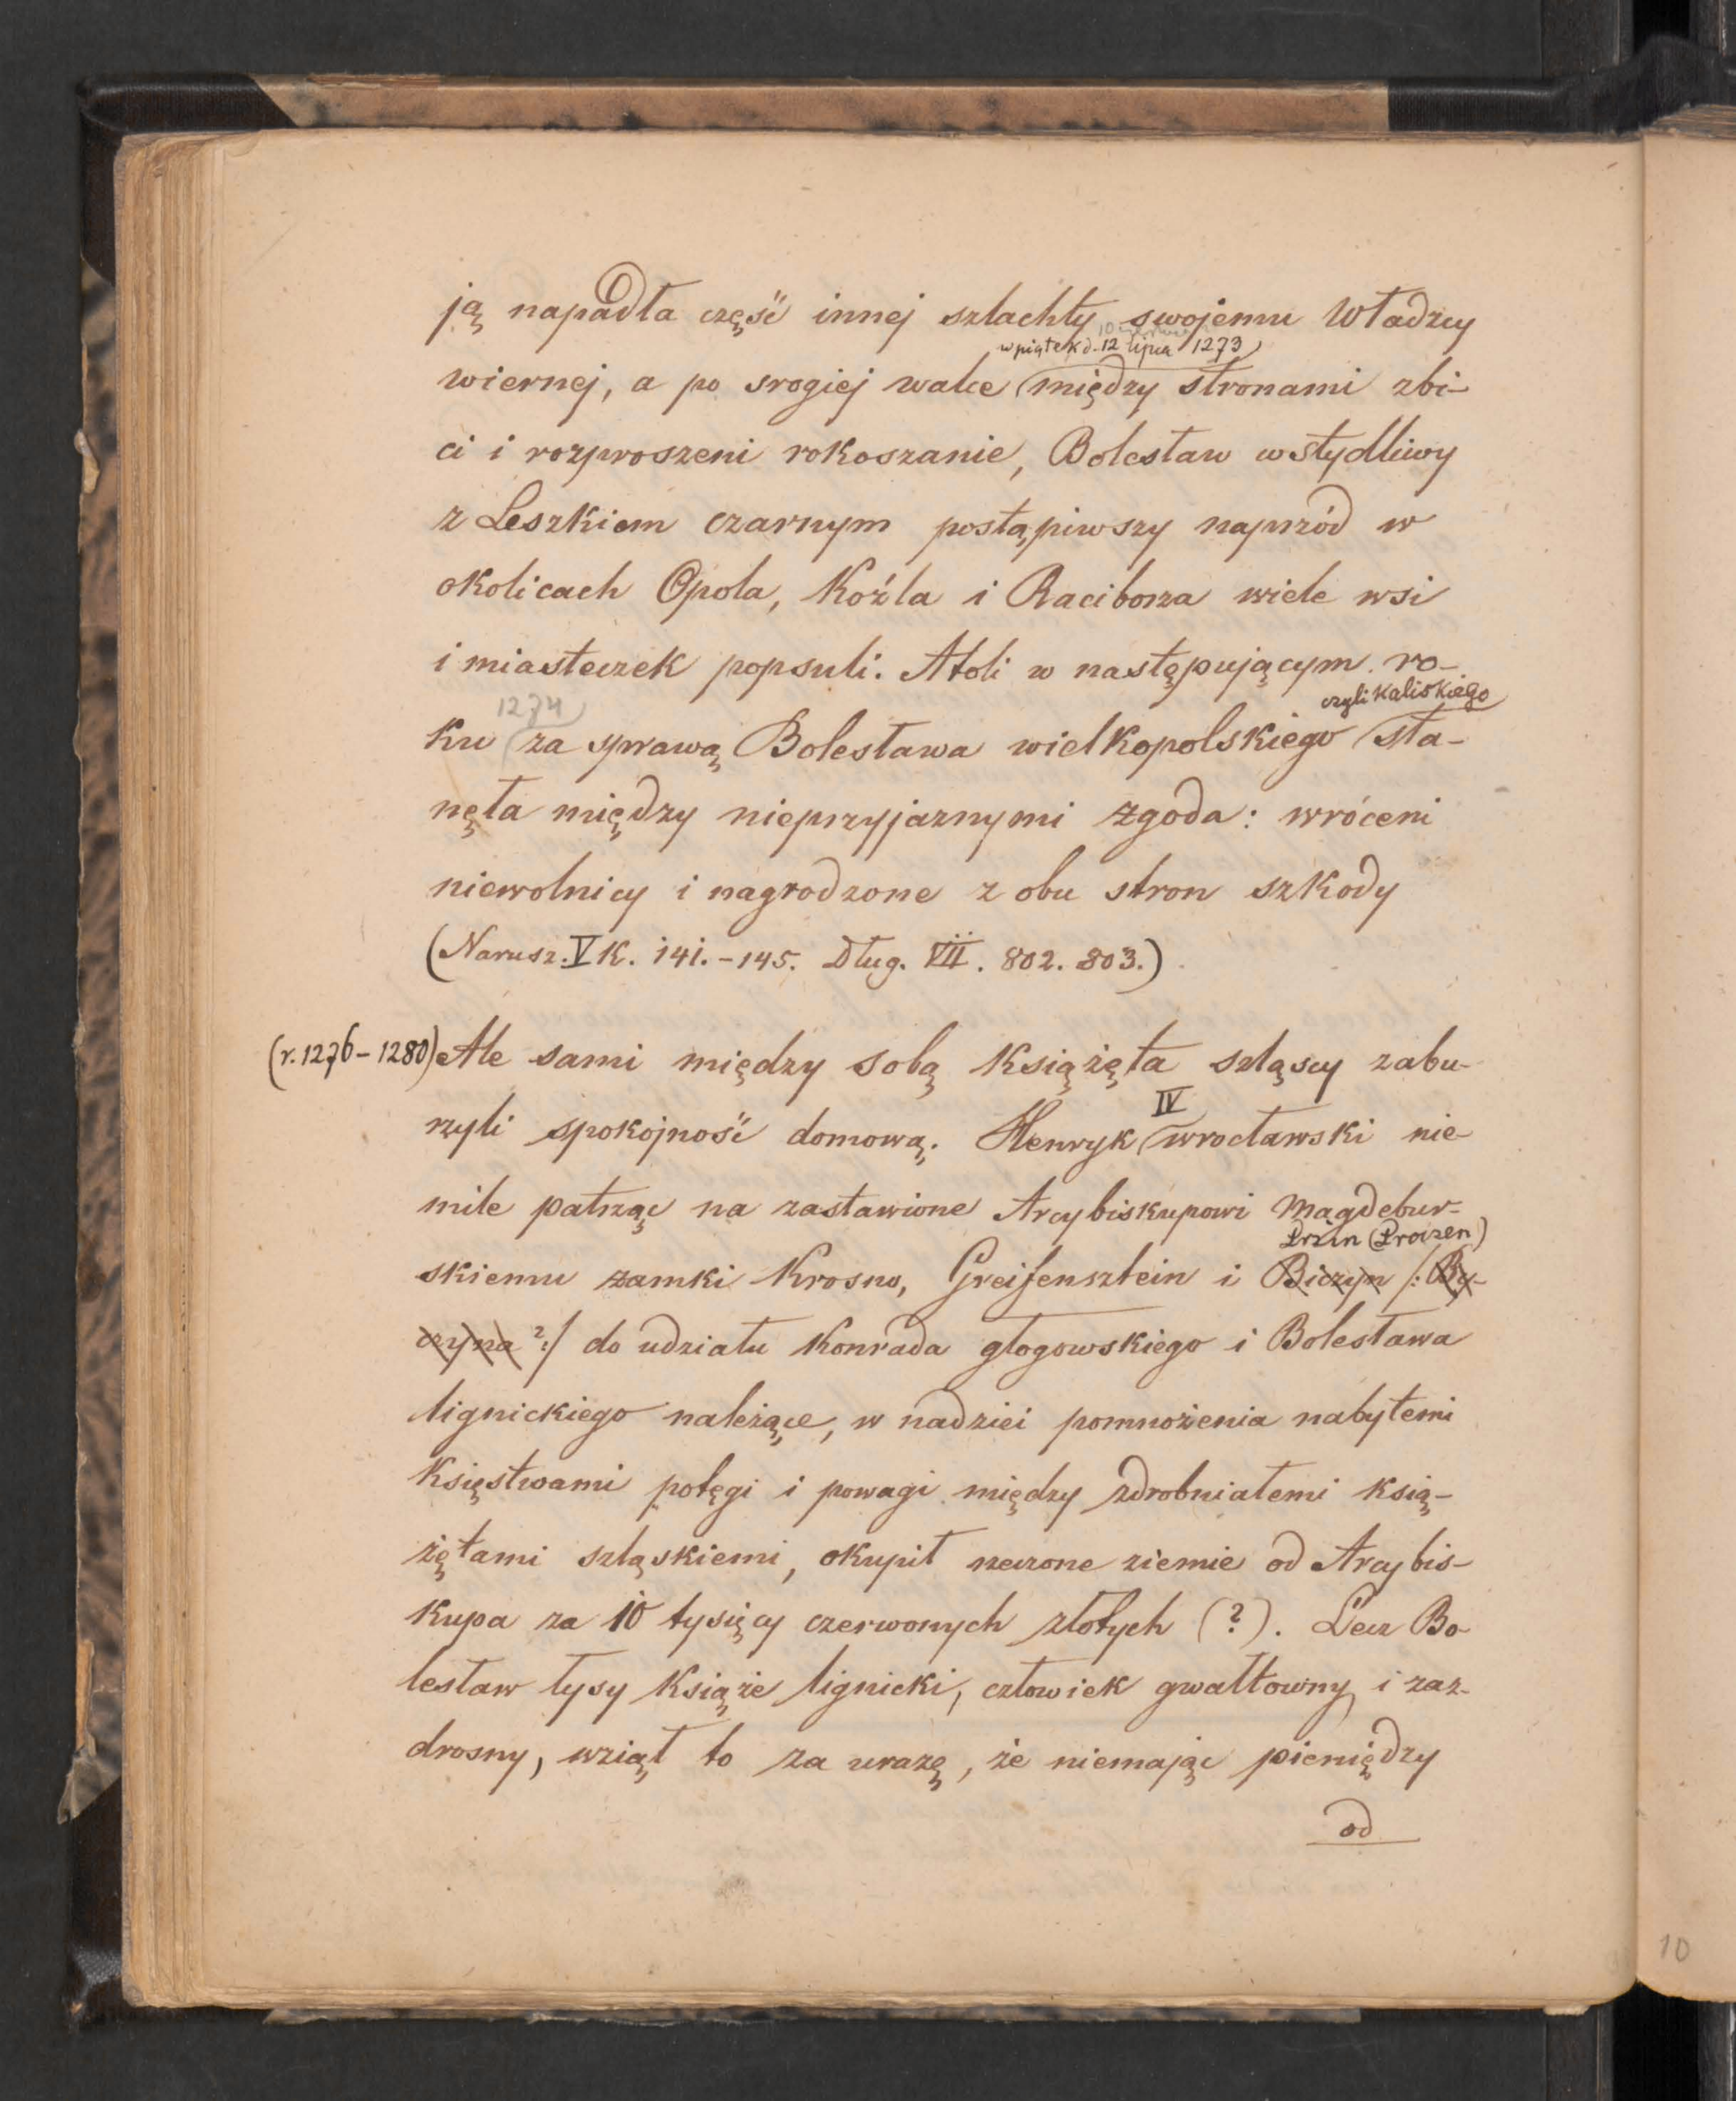 ją napadła część innej szlachty swojemu Władzcy
w piątek d. 12 lipca 1273
wiernej, a po srogiej walce między stronami zbi-
ci i rozproszeni rokoszanie, Bolesław wstydliwy
z Leszkiem czarnym postąpiwszy naprzód w
okolicach Opola, Koźla i Raciborza wiele wsi
i miasteczek popsuli. Atoli w następującym ro-
1274 czyli kaliskiego
ku za sprawą Bolesława wielkopolskiego sta-
nęła między nieprzyjaznymi zgoda: wróceni
niewolnicy i nagrodzone z obu stron szkody
(Narusz. V K. 141.-145. Dług. VII. 802. 803.)
(r. 1276-1280) Ale sami między sobą Książęta szląscy zabu-
rzyli spokojność domową. Henryk IV wrocławski nie-
mile patrząc na zastawione Arcybiskupowi Magdebur-
Przin (Proizen)
skiemu zamki Krosno, Greifensztein i Biczyn /: By-
czyna ?:/ do udziału Konrada głogowskiego i Bolesława
lignickiego należące, w nadziei pomnożenia nabytemi
Księstwami potęgi i powagi między zdrobniałemi ksią-
żętami szląskiemi, okupił rzeczone ziemie od Arcybis-
kupa za 10 tysięcy czerwonych złotych (?). Lecz Bo-
lesław łysy Książe lignicki, człowiek gwałtowny i zaz-
drosny, wziął to za urazę, że niemając pieniędzy
od
10